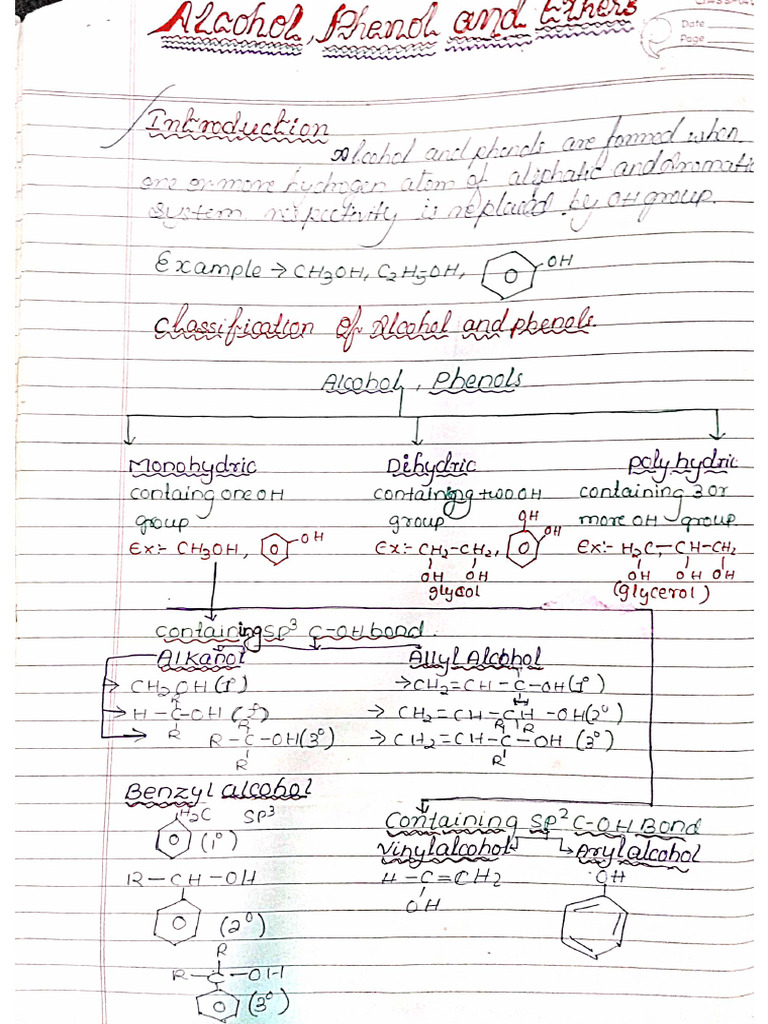 Alcohol, Phenol and Ethers
Date
Page
Introduction
Alcohol and phenols are formed when
one or more hydrogen atom of aliphatic and Aromatic
system respectivity is replaced by OH group.
Example → CH3OH, C2H5OH, OH
Classification Of Alcohol and phenols.
Alcohol, Phenols
Monohydric
containg one OH
group
Ex:- CH3OH, OH
Dihydric
containing two OH
group OH
Ex:- CH2-CH2, OH
OH OH
glycol
Poly hydric
containing 3 or
more OH group
Ex:- H2C-CH-CH2
OH OH OH
(glycerol)
containing SP3 C-OH bond.
Alkanol
CH2OH (1°)
H-C-OH
R
R
R-C-OH (3°)
R
Allyl Alcohol
→ CH2=CH-C-OH (1°)
→ CH2=CH-CH-OH (2°)
R R
→ CH2=CH-C-OH (3°)
R
Benzyl alcohol
H2C SP3
(1°)
R-CH-OH
(2°)
R
R-C-OH
(3°)
Containing SP2 C-OH Bond
Vinylalcohol
H-C=CH2
OH
Arylalcohol
OH